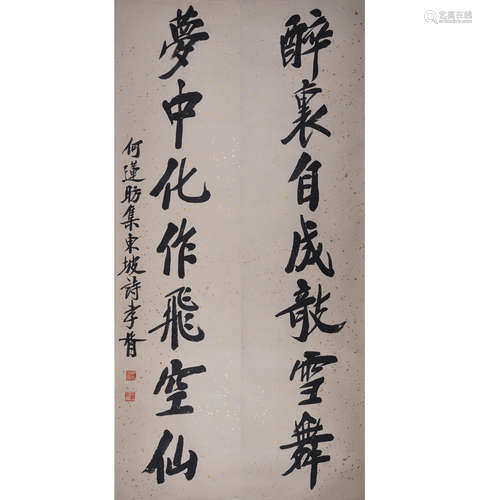 醉裏自成雪舞
夢中化作飛空仙
何蓮昉集東坡詩孝胥